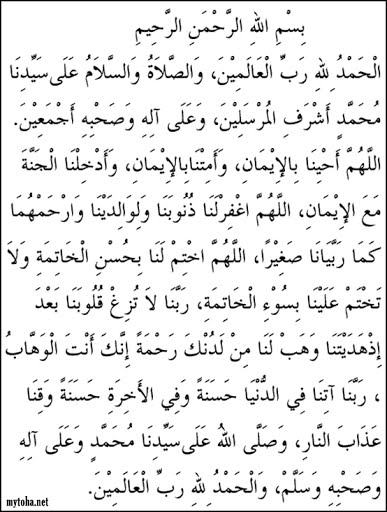 بِسْمِ اللهِ الرَّحْمَنِ الرَّحِيمِ
الْحَمْدُ لِلهِ رَبِّ الْعَالَمِيْنَ، وَالصَّلاَةُ وَالسَّلاَمُ عَلَى سَيِّدِنَا
مُحَمَّدٍ أَشْرَفِ الْمُرْسَلِيْنَ، وَعَلَى آلِهِ وَصَحْبِهِ أَجْمَعِيْنَ.
اللَّهُمَّ أَحْيِنَا بِالإِيْمَانِ، وَأَمِتْنَابِالإِيْمَانِ، وَأَدْخِلْنَا الْجَنَّةَ
مَعَ الإِيْمَانِ، اللَّهُمَّ اغْفِرْلَنَا ذُنُوبَنَا وَلِوَالِدَيْنَا وَارْحَمْهُمَا
كَمَا رَبَّيَانَا صَغِيْرًا، اللَّهُمَّ اخْتِمْ لَنَا بِحُسْنِ الْخَاتِمَةِ وَلاَ
تَخْتِمْ عَلَيْنَا بِسُوْءِ الْخَاتِمَةِ، رَبَّنَا لاَ تُزِغْ قُلُوبَنَا بَعْدَ
إِذْهَدَيْتَنَا وَهَبْ لَنَا مِنْ لَدُنْكَ رَحْمَةً إِنَّكَ أَنْتَ الْوَهَّابُ
، رَبَّنَا آتِنَا فِي الدُّنْيَا حَسَنَةً وَفِي الأَخِرَةِ حَسَنَةً وَقِنَا
عَذَابَ النَّارِ، وَصَلَّى اللهُ عَلَى سَيِّدِنَا مُحَمَّدٍ وَعَلَى آلِهِ
وَصَحْبِهِ وَسَلَّمْ، وَالْحَمْدُ لِلهِ رَبِّ الْعَالَمِيْنَ.
mytoha.net